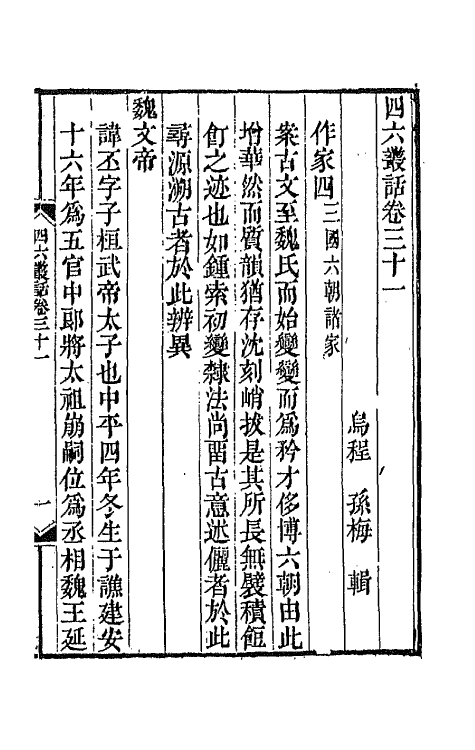 四六叢話卷三十一
烏程　孫梅　輯
作家四三國六朝諸家
案古文至魏氏而始變變而爲矜才侈博六朝由此
增華然而質韻猶存沈刻峭拔是其所長無襞積餖
飣之迹也如鍾索初變隸法尚畱古意述儷者於此
尋源溯古者於此辨異
魏文帝
諱丕字子桓武帝太子也中平四年冬生于譙建安
十六年爲五官中郎將太祖崩嗣位爲丞相魏王延
四六叢話卷三十一
一